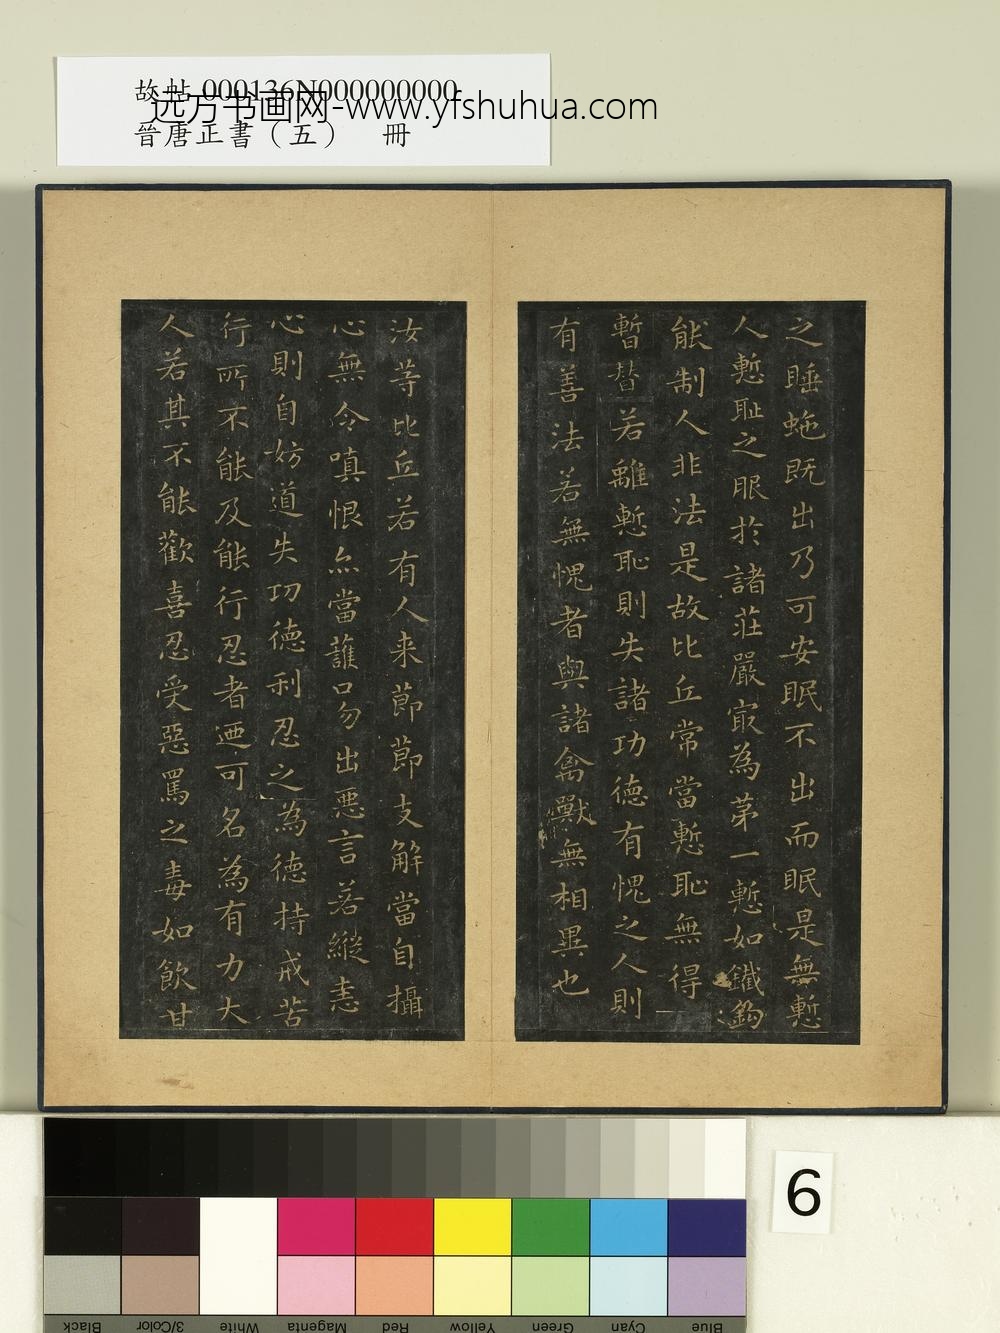 故帖 000136N000000000
远方书画网-www.yfshuhua.com
晉唐正書（五） 冊
之睡虵既出乃可安眠不出而眠是無慙
人慙耻之服於諸莊嚴冣為苐一慙如鐵鉤
能制人非法是故比丘常當慙恥無得
暫替若離慙恥則失諸功德有愧之人則
有善法若無愧者與諸禽獸無相異也
汝等比丘若有人来節節支解當自攝
心無令嗔恨亦當護口勿出惡言若縱恚
心則自妨道失功德利忍之為德持戒苦
行所不能及能行忍者迺可名為有力大
人若其不能歡喜忍受惡罵之毒如飲甘
6
Black
3/Color
White
Magenta
Red
Yellow
Green
Cyan
Blue